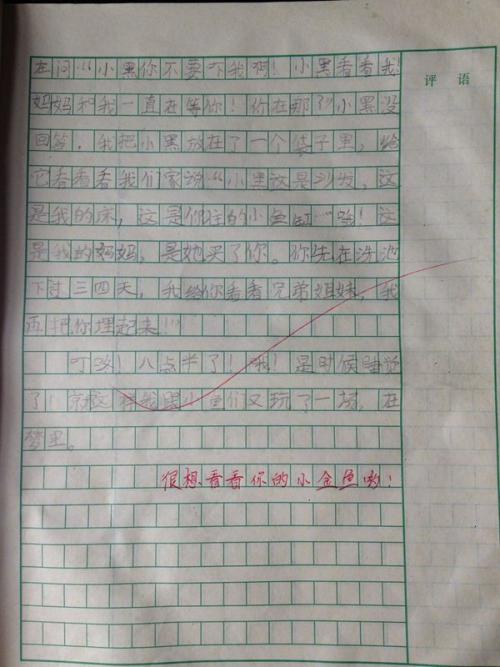 在问“小黑你不要吓我啊！小黑看看我！
评语
妈妈和我一直在等你！你在那？”小黑没
回答，我把小黑放在了一个袋子里，给
它看看看我们家说“小黑这是沙发，这
是我的床，这是你住的小鱼缸……哦！这
是我的妈妈，是她买了你。你先在洗池
下过三四天，我给你看看兄弟姐妹，我
再把你埋起来！”
叮咚！八点半了！哦！是时候睡觉
了！就这样我跟小鱼们又玩了一场，在
梦里。
很想看看你的小金鱼哟！